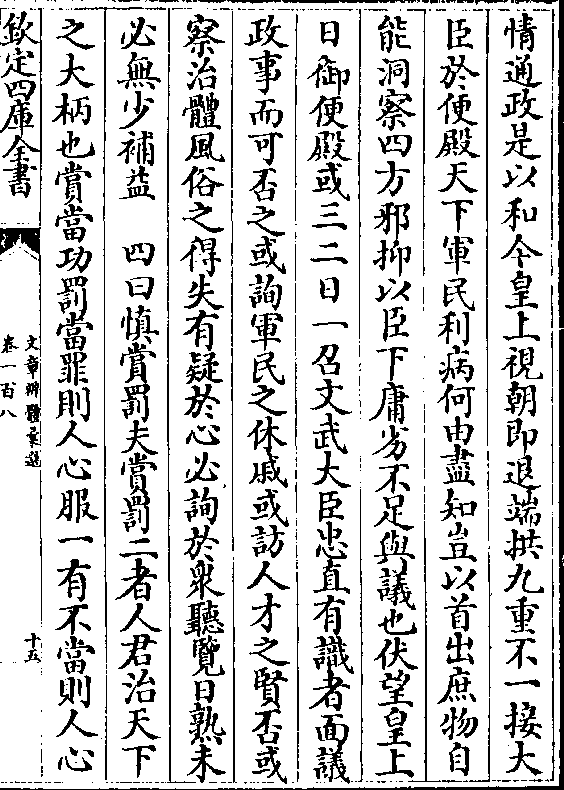 情通政是以和今皇上視朝即退端拱九重不一接大
臣於便殿天下軍民利病何由盡知豈以首出庶物自
能洞察四方邪抑以臣下庸劣不足與議也伏望皇上
日御便殿或三二日一召文武大臣忠直有識者面議
政事而可否之或詢軍民之休戚或訪人才之賢否或
察治體風俗之得失有疑於心必詢於衆聽覽日熟未
必無少補益　四曰慎賞罰夫賞罰二者人君治天下
之大柄也賞當功罰當罪則人心服一有不當則人心
欽定四庫全書
文章辨體彚選
卷一百八
十五